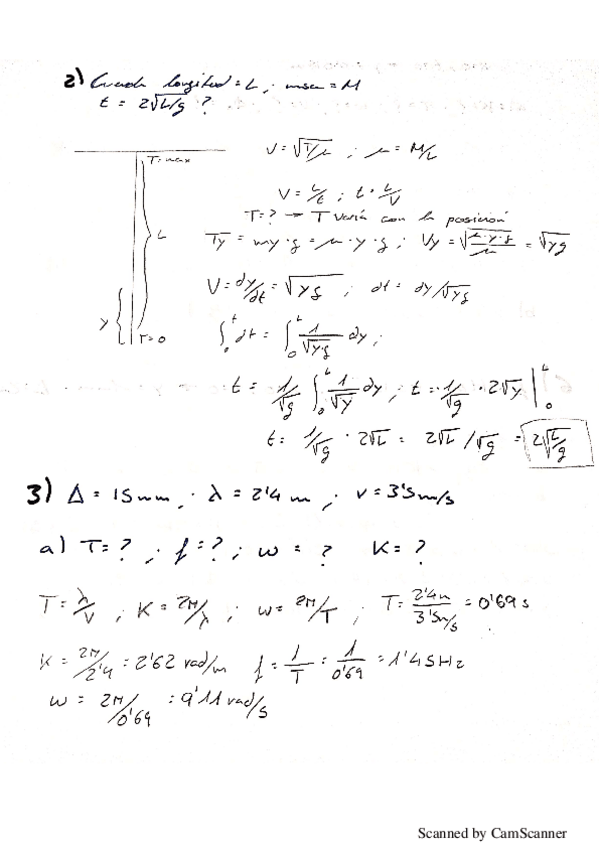 2) Cuerda longitud = L ; masa = M
t = 2√L/g ?
T = max
V = √T/μ ; μ = M/L
V = L/t ; t = L/V
T = ? → T varía con la posición
L
Ty = my · g = μ · y · g ; Vy = √μ·y·g/μ = √yg
V = dy/dt = √yg ; dt = dy/√yg
y
T = 0
∫₀ᵗ dt = ∫₀ᴸ 1/√yg dy ;
t = 1/√g ∫₀ᴸ 1/√y dy ; t = 1/√g · 2√y |₀ᴸ
t = 1/√g · 2√L = 2√L / √g = 2√L/g
3) Δ = 15mm ; λ = 2'4 m ; v = 3'5m/s
a) T = ? ; f = ? ; w = ? K = ?
T = λ/V ; K = 2π/λ ; w = 2π/T ; T = 2'4m/3'5m/s = 0'69 s
K = 2π/2'4 = 2'62 rad/m f = 1/T = 1/0'69 = 1'45Hz
w = 2π/0'69 = 9'11 rad/s
Scanned by CamScanner